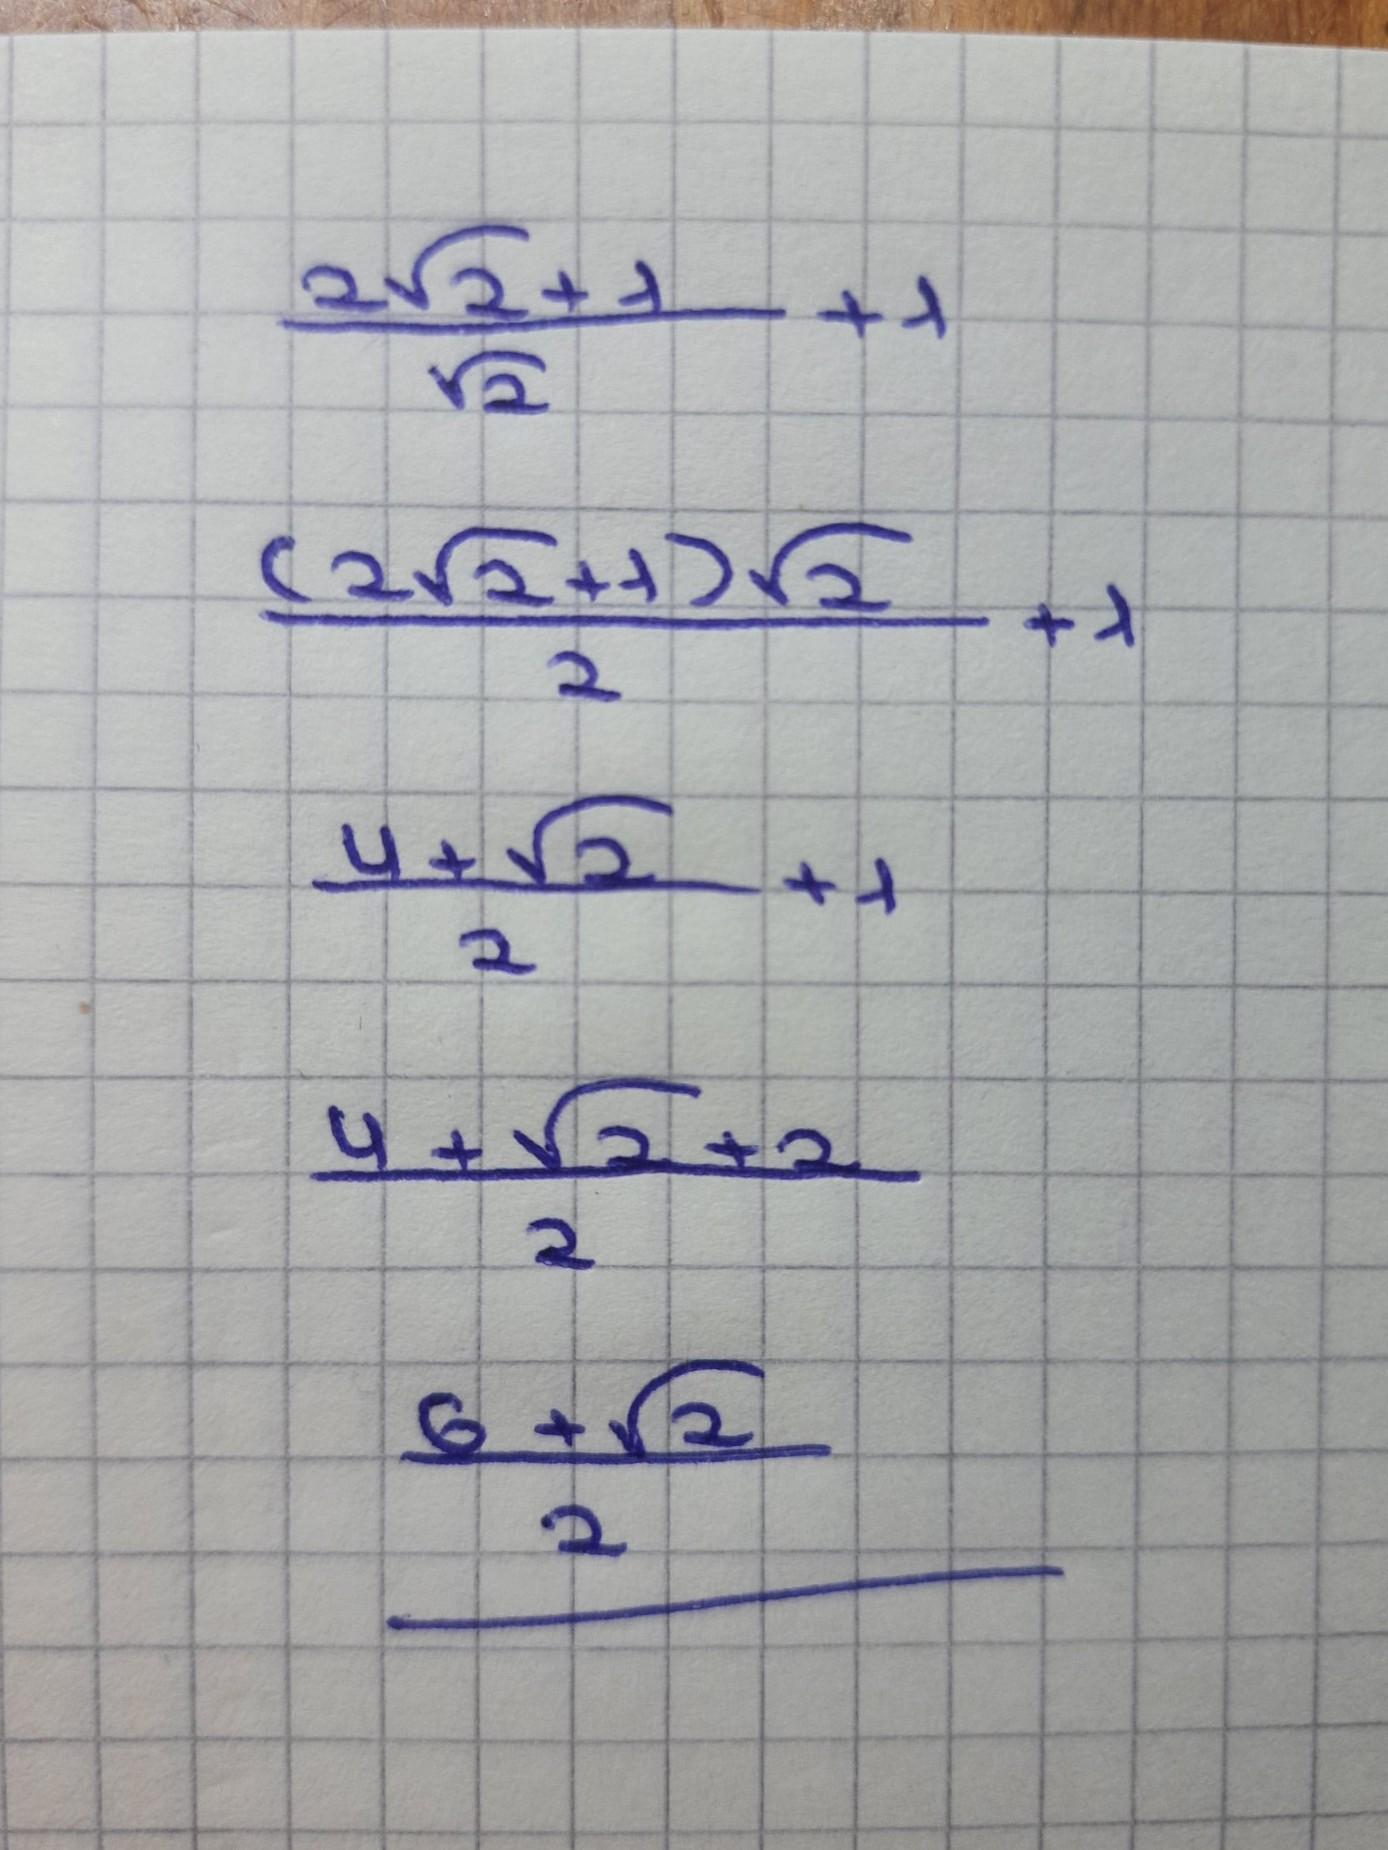 (2√2 + 1)/√2 + 1
((2√2 + 1)√2)/2 + 1
(4 + √2)/2 + 1
(4 + √2 + 2)/2
(6 + √2)/2